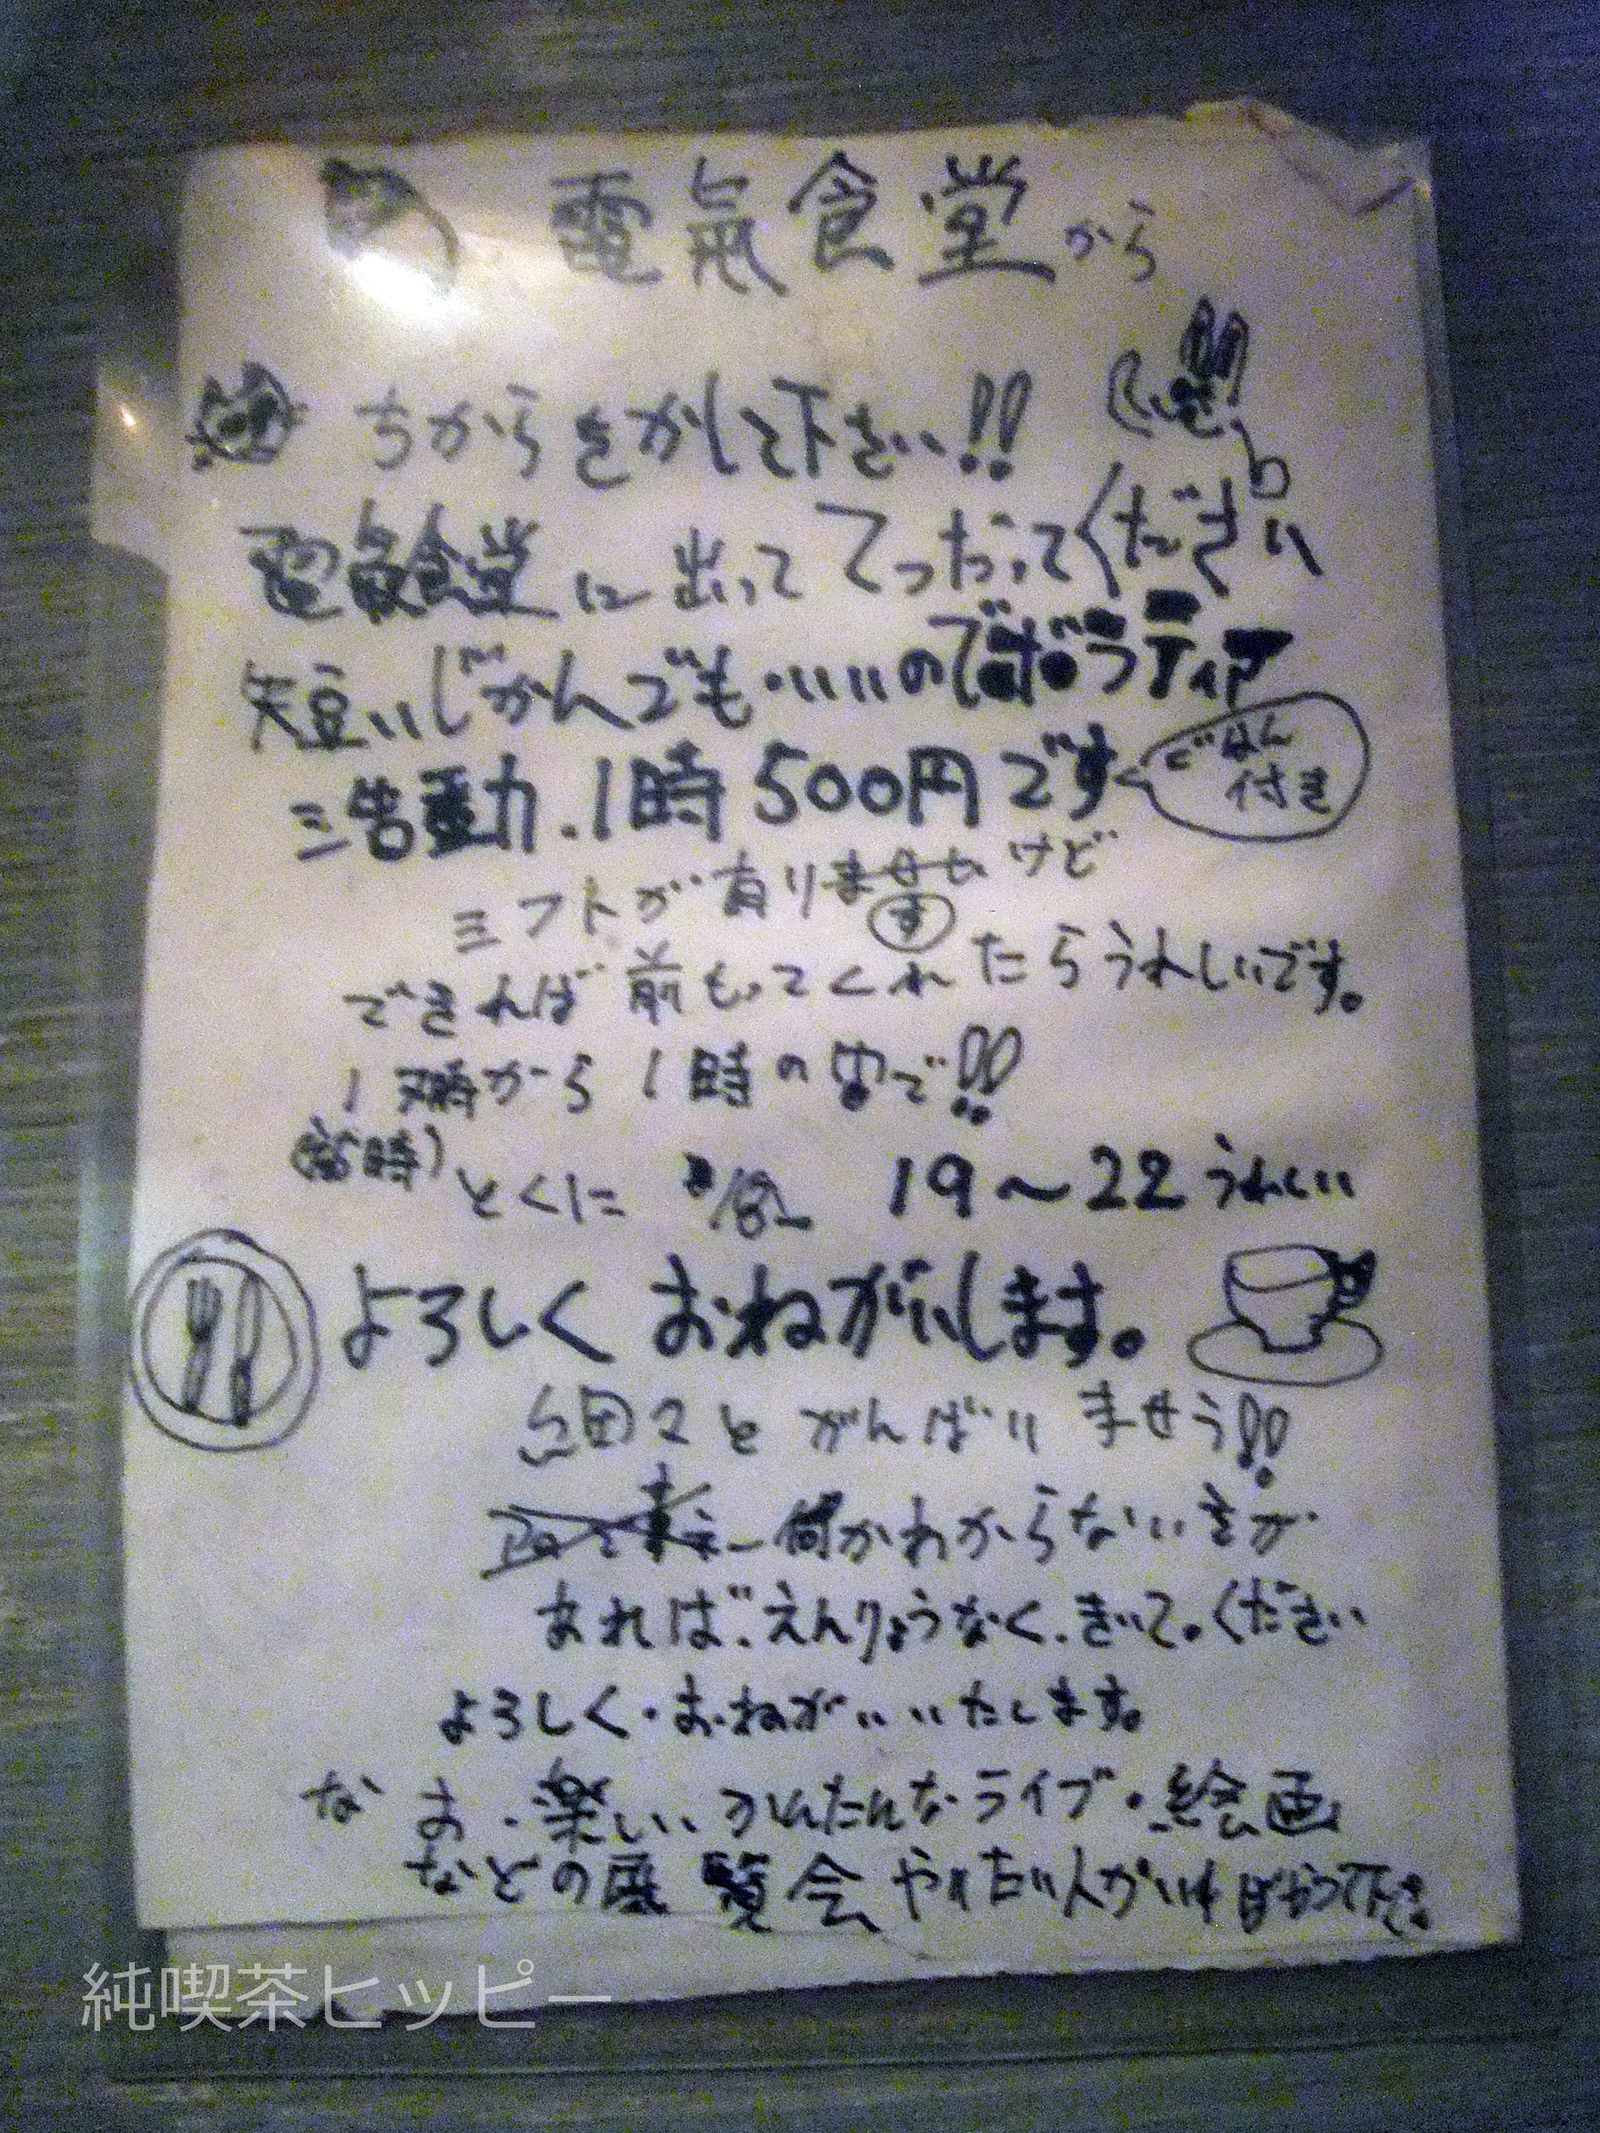 電氣食堂から
ちからをかして下さい!!
電氣食堂に出って てつだってください
短いじかんでも・いいのでボラティア
労働.1時500円です
ごはん
付き
シフトが有りませんけど
す
できれば前もってくれたらうれしいです。
1時から1時の中で!!
とくに 19〜22うれしい
よろしくおねがいします。
がんばりませう!!
何かわからない
あれば.えんりょうなく.きいて.ください
よろしく・おねがいいたします。
なお・楽しい、かんたんなライブ・絵画
などの展覧会やりたい人がいればやって下さい
純喫茶ヒッピー